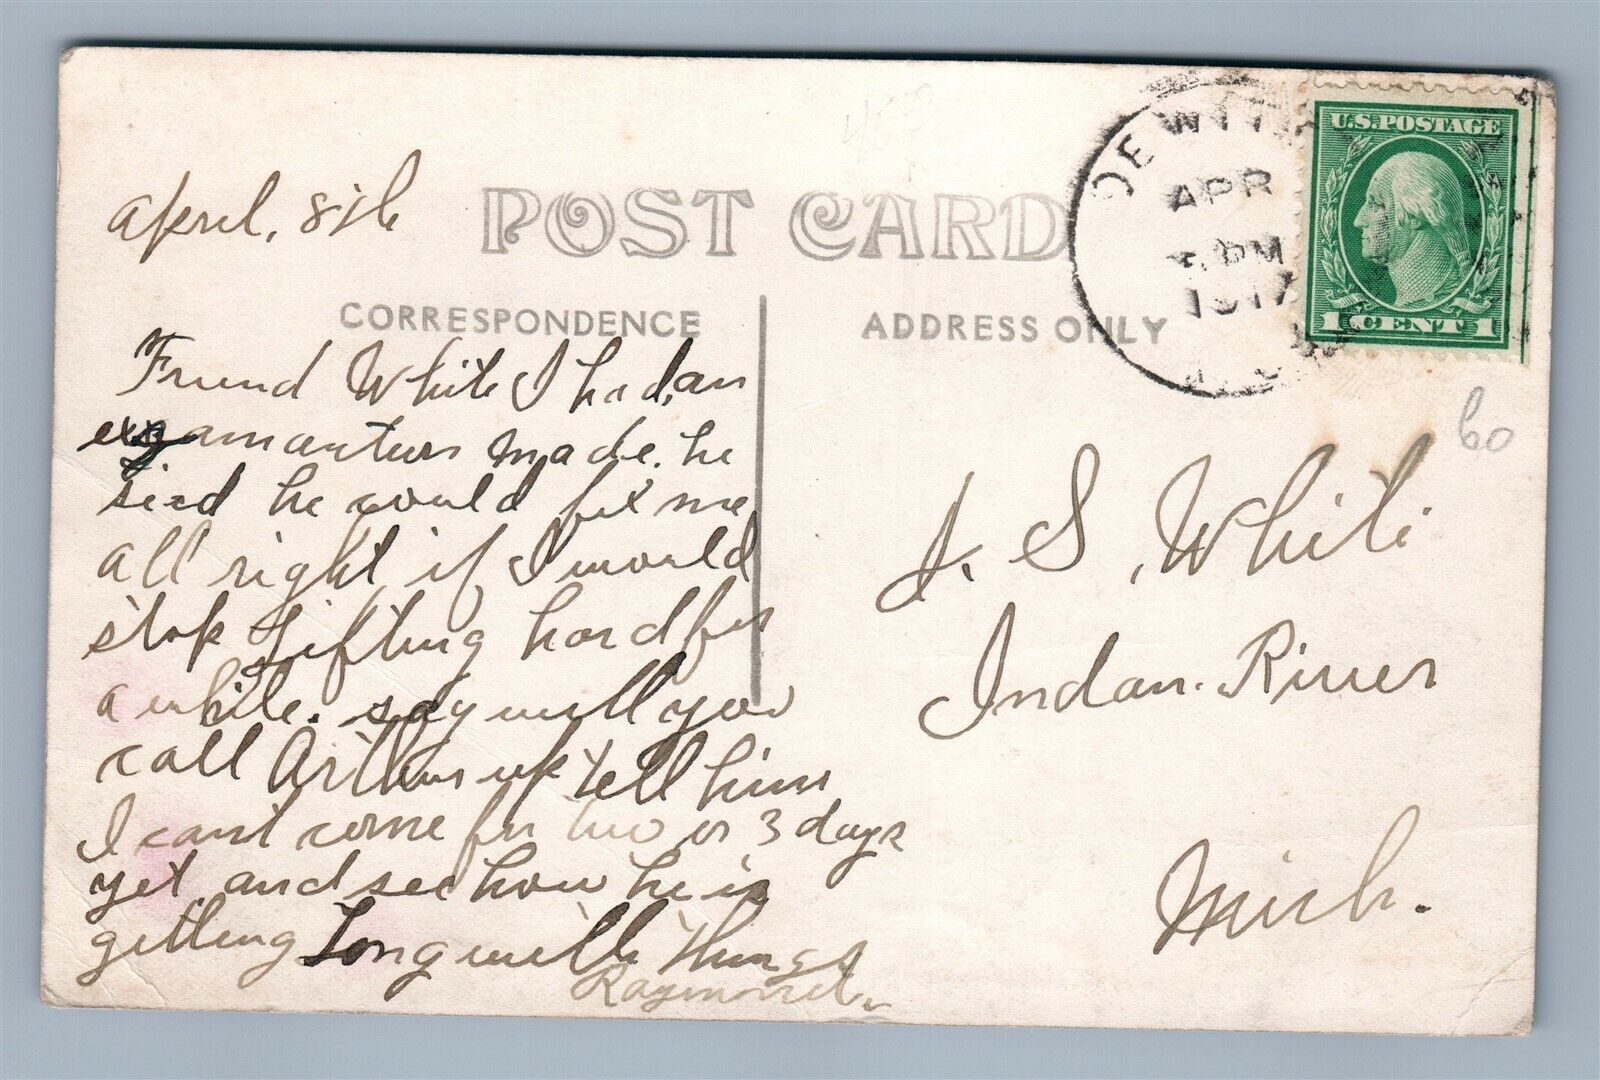 April, 8th
POST CARD
CORRESPONDENCE
ADDRESS ONLY
DEWITT
APR
PM
1917
U.S. POSTAGE
1 CENT 1
60
Frund White I had, an
examanturs made. he
sied he would fix me
all right, if I would
stop Lifting hard for
a while. say will you
call Arthur up tell him
I cant come for two or 3 days
yet, and see how he is
getting Long with Things
Raymond.
J. S. White
Indan. River
Mich.